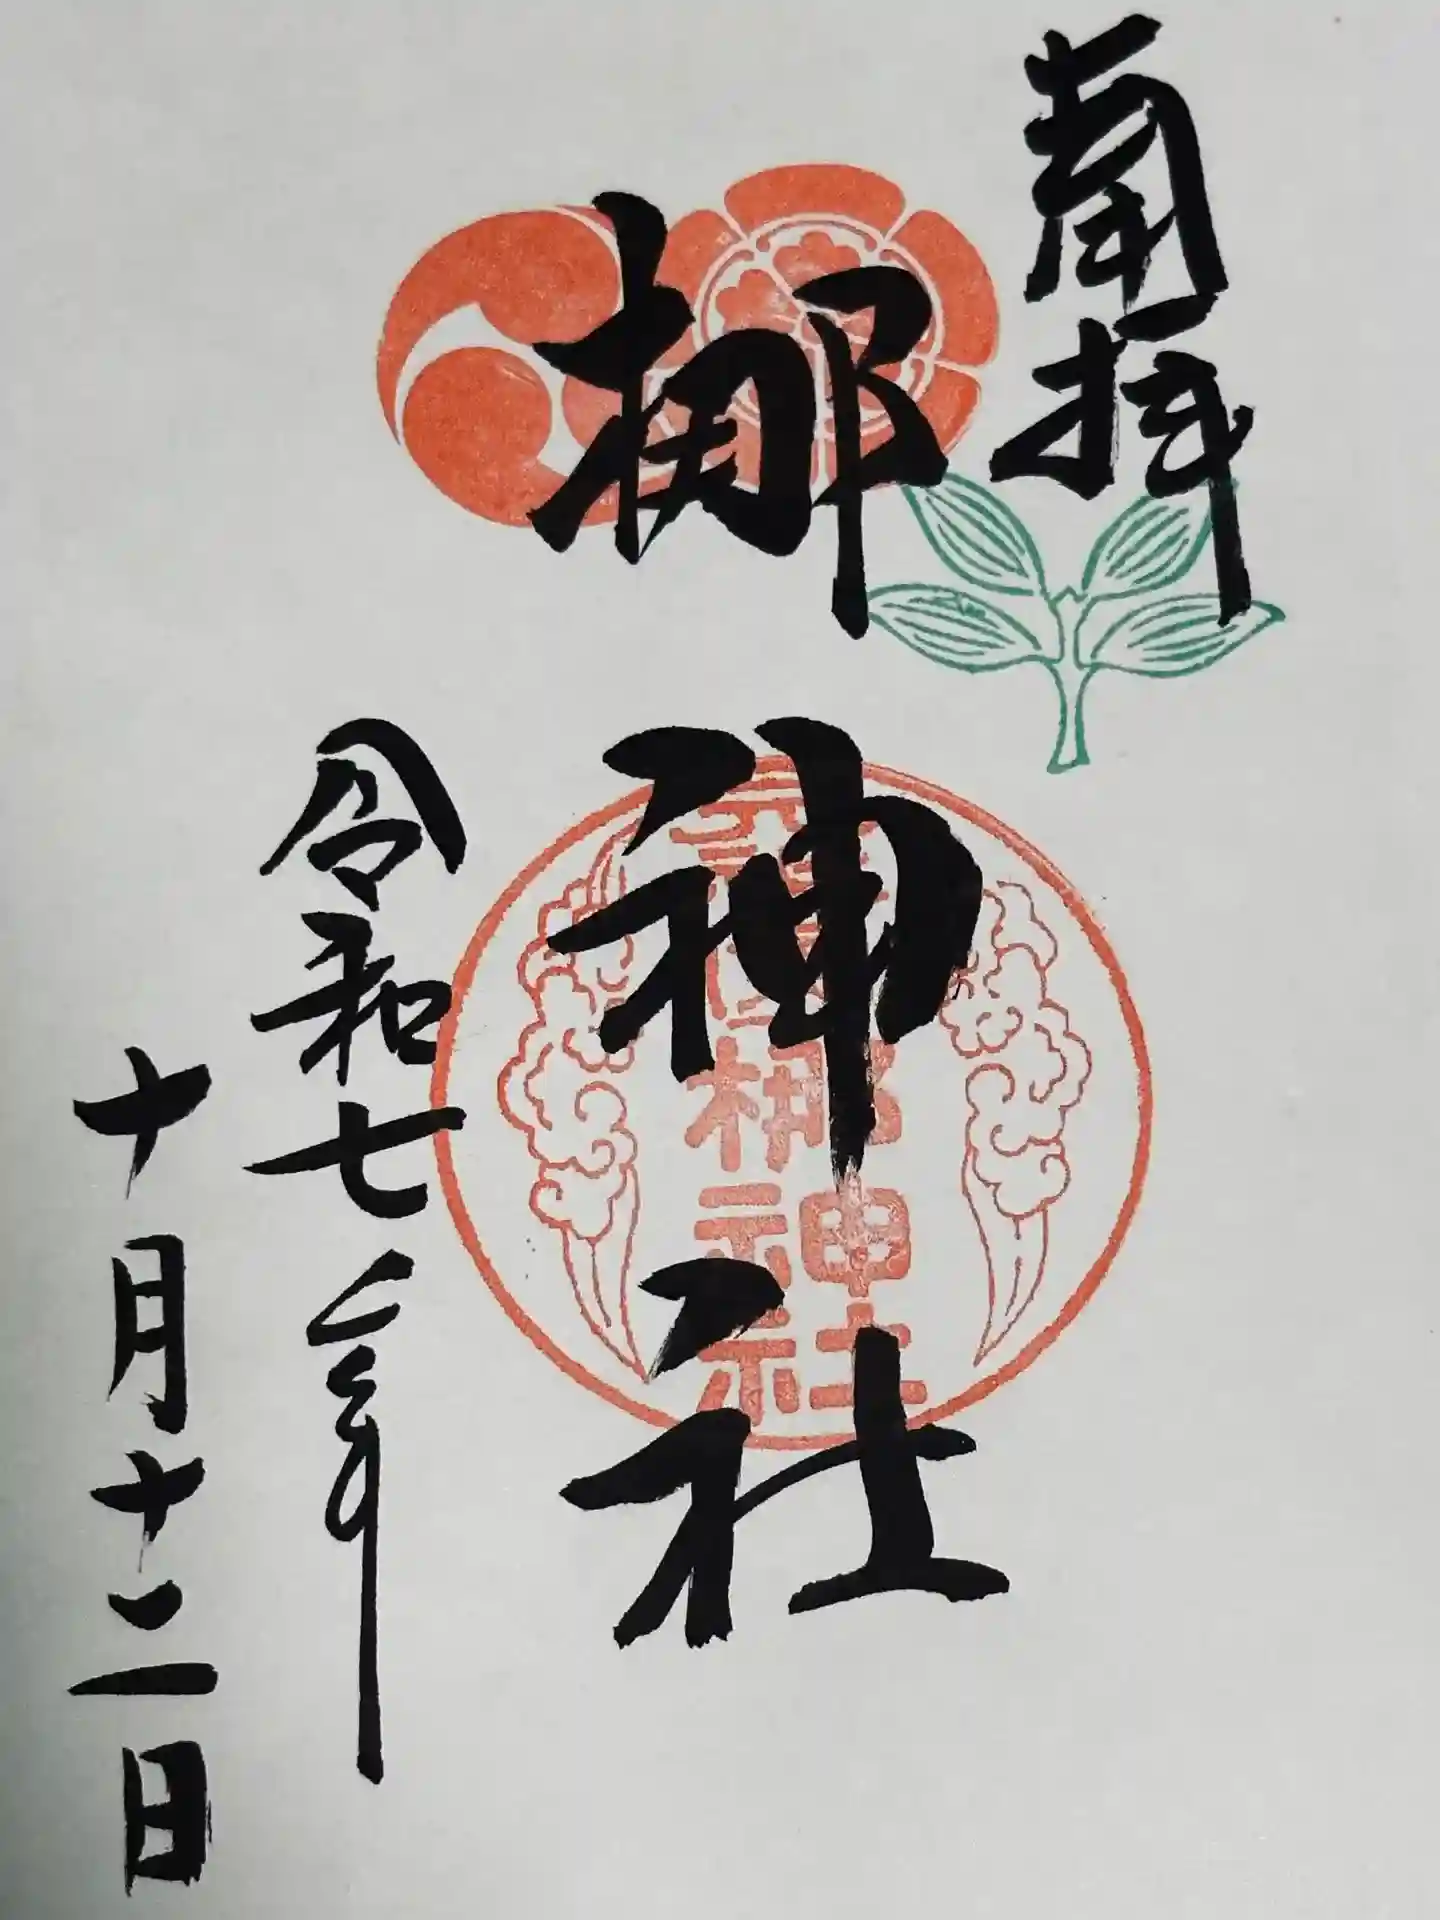 奉拝
梛
神
社
梛
神
社
令和七年
十月十二日